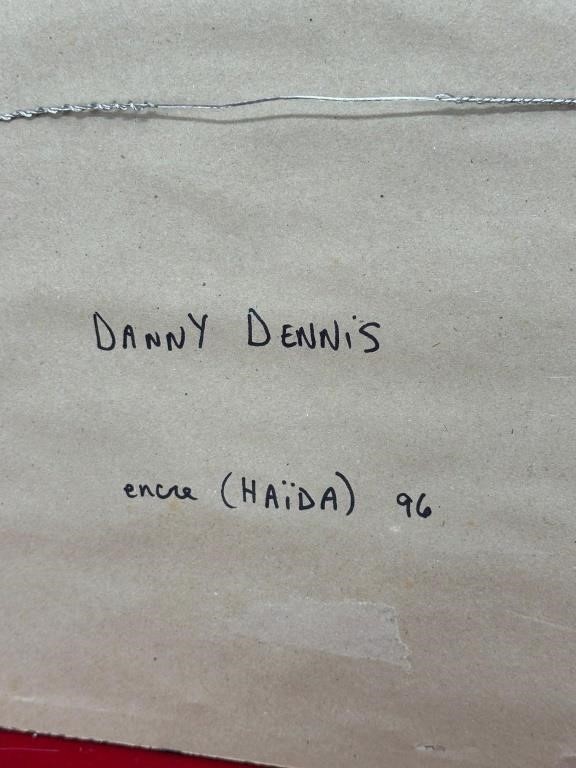 DANNY DENNiS
encre (HAïDA) 96